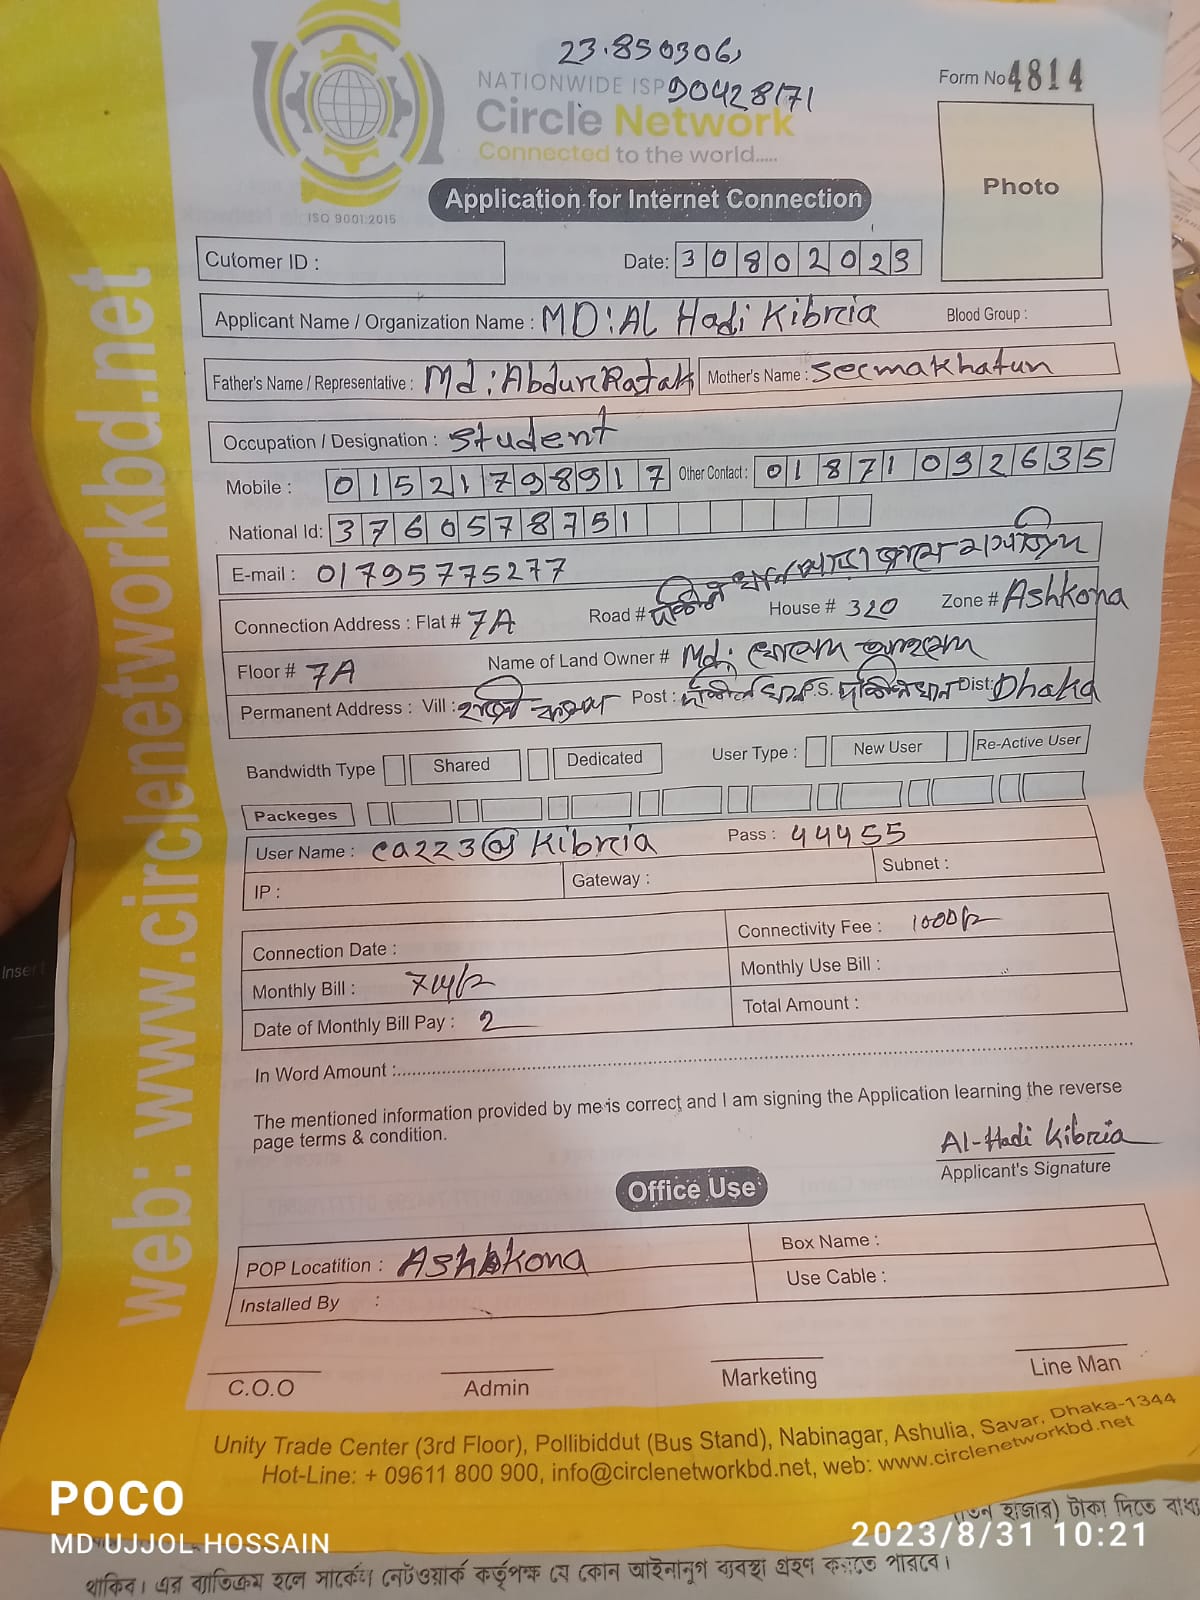 23.850306,
90428171
NATIONWIDE ISP
Circle Network
Connected to the world.....
ISO 9001:2015
Form No 4814
Photo
Application for Internet Connection
Cutomer ID :
Date: 30802023
Applicant Name / Organization Name : MD: AL Hadi Kibria Blood Group :
Father's Name / Representative : Md: Abdur Razak Mother's Name : Seema Khatun
Occupation / Designation : Student
Mobile : 01521798917 Other Contact : 01871092635
National Id: 3760578751
E-mail : 01795775277
Connection Address : Flat # 7A Road # দক্ষিন House # 320 Zone # Ashkona
Floor # 7A Name of Land Owner # Md:
Permanent Address : Vill : Post : P.S. দক্ষিনখান Dist: Dhaka
Bandwidth Type Shared Dedicated User Type : New User Re-Active User
Packeges
User Name : ca223@ Kibria Pass : 44455
IP : Gateway : Subnet :
Connection Date : Connectivity Fee : 1000/-
Monthly Bill : 714/- Monthly Use Bill :
Date of Monthly Bill Pay : 2 Total Amount :
In Word Amount :
The mentioned information provided by me is correct and I am signing the Application learning the reverse
page terms & condition.
Al-Hadi Kibria
Applicant's Signature
Office Use
POP Locatition : Ashkona Box Name :
Installed By : Use Cable :
C.O.O Admin Marketing Line Man
Unity Trade Center (3rd Floor), Pollibiddut (Bus Stand), Nabinagar, Ashulia, Savar, Dhaka-1344
Hot-Line: + 09611 800 900, info@circlenetworkbd.net, web: www.circlenetworkbd.net
web: www.circlenetworkbd.net
Insert
POCO
MD UJJOL HOSSAIN
2023/8/31 10:21
(তিন হাজার) টাকা দিতে বাধ্য
থাকিব। এর ব্যতিক্রম হলে সার্কেল নেটওয়ার্ক কর্তৃপক্ষ যে কোন আইনানুগ ব্যবস্থা গ্রহণ করতে পারবে।